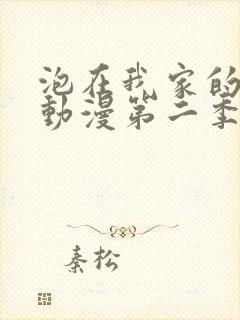 泡在我家的
動漫第二季
秦松